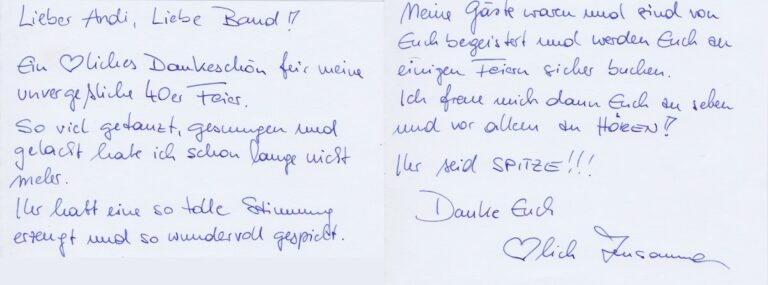 Lieber Andi, Liebe Band!
Ein ♡liches Dankeschön für meine
unvergeßliche 40er Feier.
So viel getanzt, gesungen und
gelacht habe ich schon lange nicht
mehr.
Ihr habt eine so tolle Stimmung
erzeugt und so wundervoll gespielt.
Meine Gäste waren und sind von
Euch begeistert und werden Euch an
einigen Feiern sicher buchen.
Ich freue mich dann Euch zu sehen
und vor allem zu HÖREN!
Ihr seid SPITZE!!!
Danke Euch
♡lich Susanna